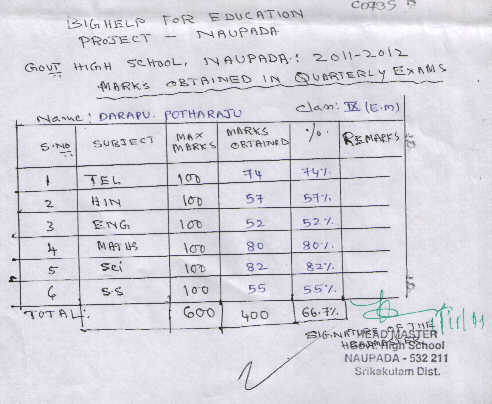 C0735
BIGHELP FOR EDUCATION
PROJECT - NAUPADA
GOVT HIGH SCHOOL, NAUPADA: 2011-2012
MARKS OBTAINED IN QUARTERLY EXAMS
Name: DARAPU. POTHARAJU Class: IX (E.m)
S.NO SUBJECT MAX MARKS MARKS OBTAINED % REMARKS
1 TEL 100 74 74%
2 HIN 100 57 57%
3 ENG 100 52 52%
4 MATHS 100 80 80%
5 Sci 100 82 82%
6 S.S 100 55 55%
TOTAL: 600 400 66.7%
SIGNATURE OF THE
HEADMASTER
HEAD MASTER
Govt. High School
NAUPADA - 532 211
Srikakulam Dist.